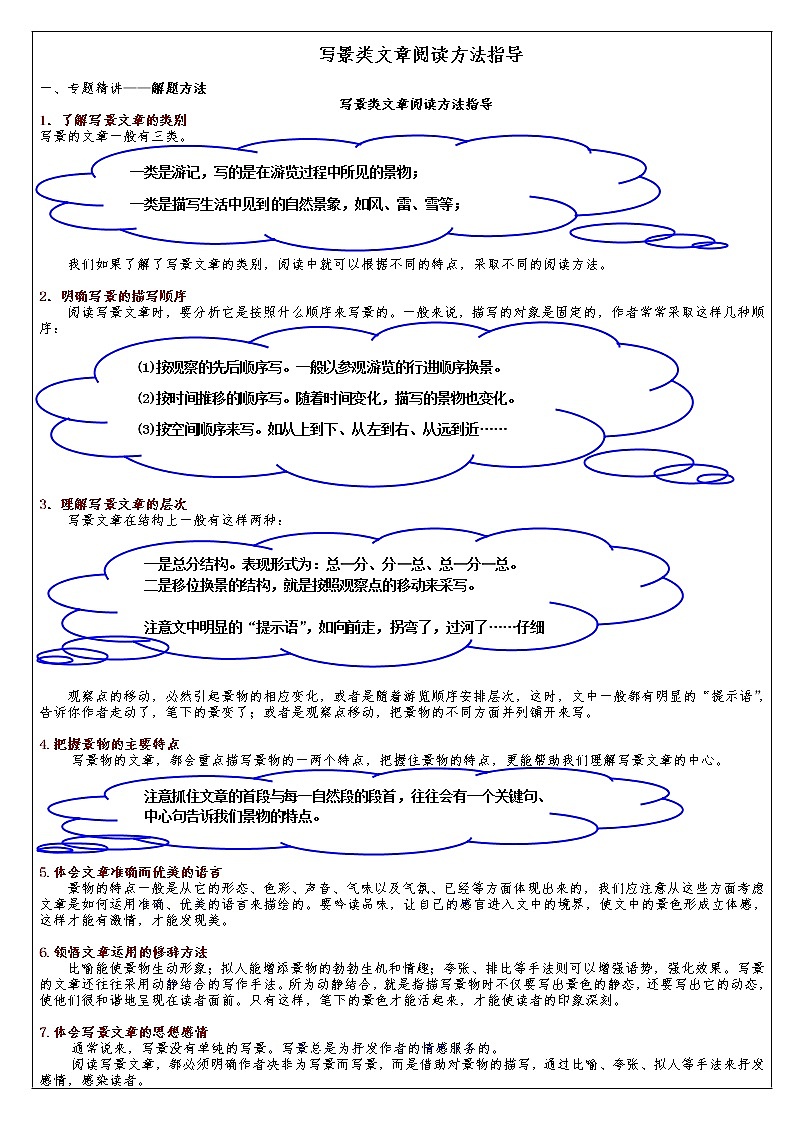 写景类文章阅读方法指导
一、专题精讲——解题方法
写景类文章阅读方法指导
1．了解写景文章的类别
写景的文章一般有三类。
一类是游记，写的是在游览过程中所见的景物；
一类是描写生活中见到的自然景象，如风、雷、雪等；
我们如果了解了写景文章的类别，阅读中就可以根据不同的特点，采取不同的阅读方法。
2．明确写景的描写顺序
阅读写景文章时，要分析它是按照什么顺序来写景的。一般来说，描写的对象是固定的，作者常常采取这样几种顺
序：
⑴按观察的先后顺序写。一般以参观游览的行进顺序换景。
⑵按时间推移的顺序写。随着时间变化，描写的景物也变化。
⑶按空间顺序来写。如从上到下、从左到右、从远到近……
3．理解写景文章的层次
写景文章在结构上一般有这样两种：
一是总分结构。表现形式为：总—分、分—总、总—分—总。
二是移位换景的结构，就是按照观察点的移动来采写。
注意文中明显的“提示语”，如向前走，拐弯了，过河了……仔细
观察点的移动，必然引起景物的相应变化，或者是随着游览顺序安排层次，这时，文中一般都有明显的“提示语”，
告诉你作者走动了，笔下的景变了；或者是观察点移动，把景物的不同方面并列铺开来写。
4.把握景物的主要特点
写景物的文章，都会重点描写景物的一两个特点，把握住景物的特点，更能帮助我们理解写景文章的中心。
注意抓住文章的首段与每一自然段的段首，往往会有一个关键句、
中心句告诉我们景物的特点。
5.体会文章准确而优美的语言
景物的特点一般是从它的形态、色彩、声音、气味以及气氛、已经等方面体现出来的，我们应注意从这些方面考虑
文章是如何运用准确、优美的语言来描绘的。要吟读品味，让自己的感官进入文中的境界，使文中的景色形成立体感，
这样才能有激情，才能发现美。
6.领悟文章运用的修辞方法
比喻能使景物生动形象；拟人能增添景物的勃勃生机和情趣；夸张、排比等手法则可以增强语势，强化效果。写景
的文章还往往采用动静结合的写作手法。所为动静结合，就是指描写景物时不仅要写出景色的静态，还要写出它的动态，
使他们很和谐地呈现在读者面前。只有这样，笔下的景色才能活起来，才能使读者的印象深刻。
7.体会写景文章的思想感情
通常说来，写景没有单纯的写景。写景总是为抒发作者的情感服务的。
阅读写景文章，都必须明确作者决非为写景而写景，而是借助对景物的描写，通过比喻、夸张、拟人等手法来抒发
感情，感染读者。